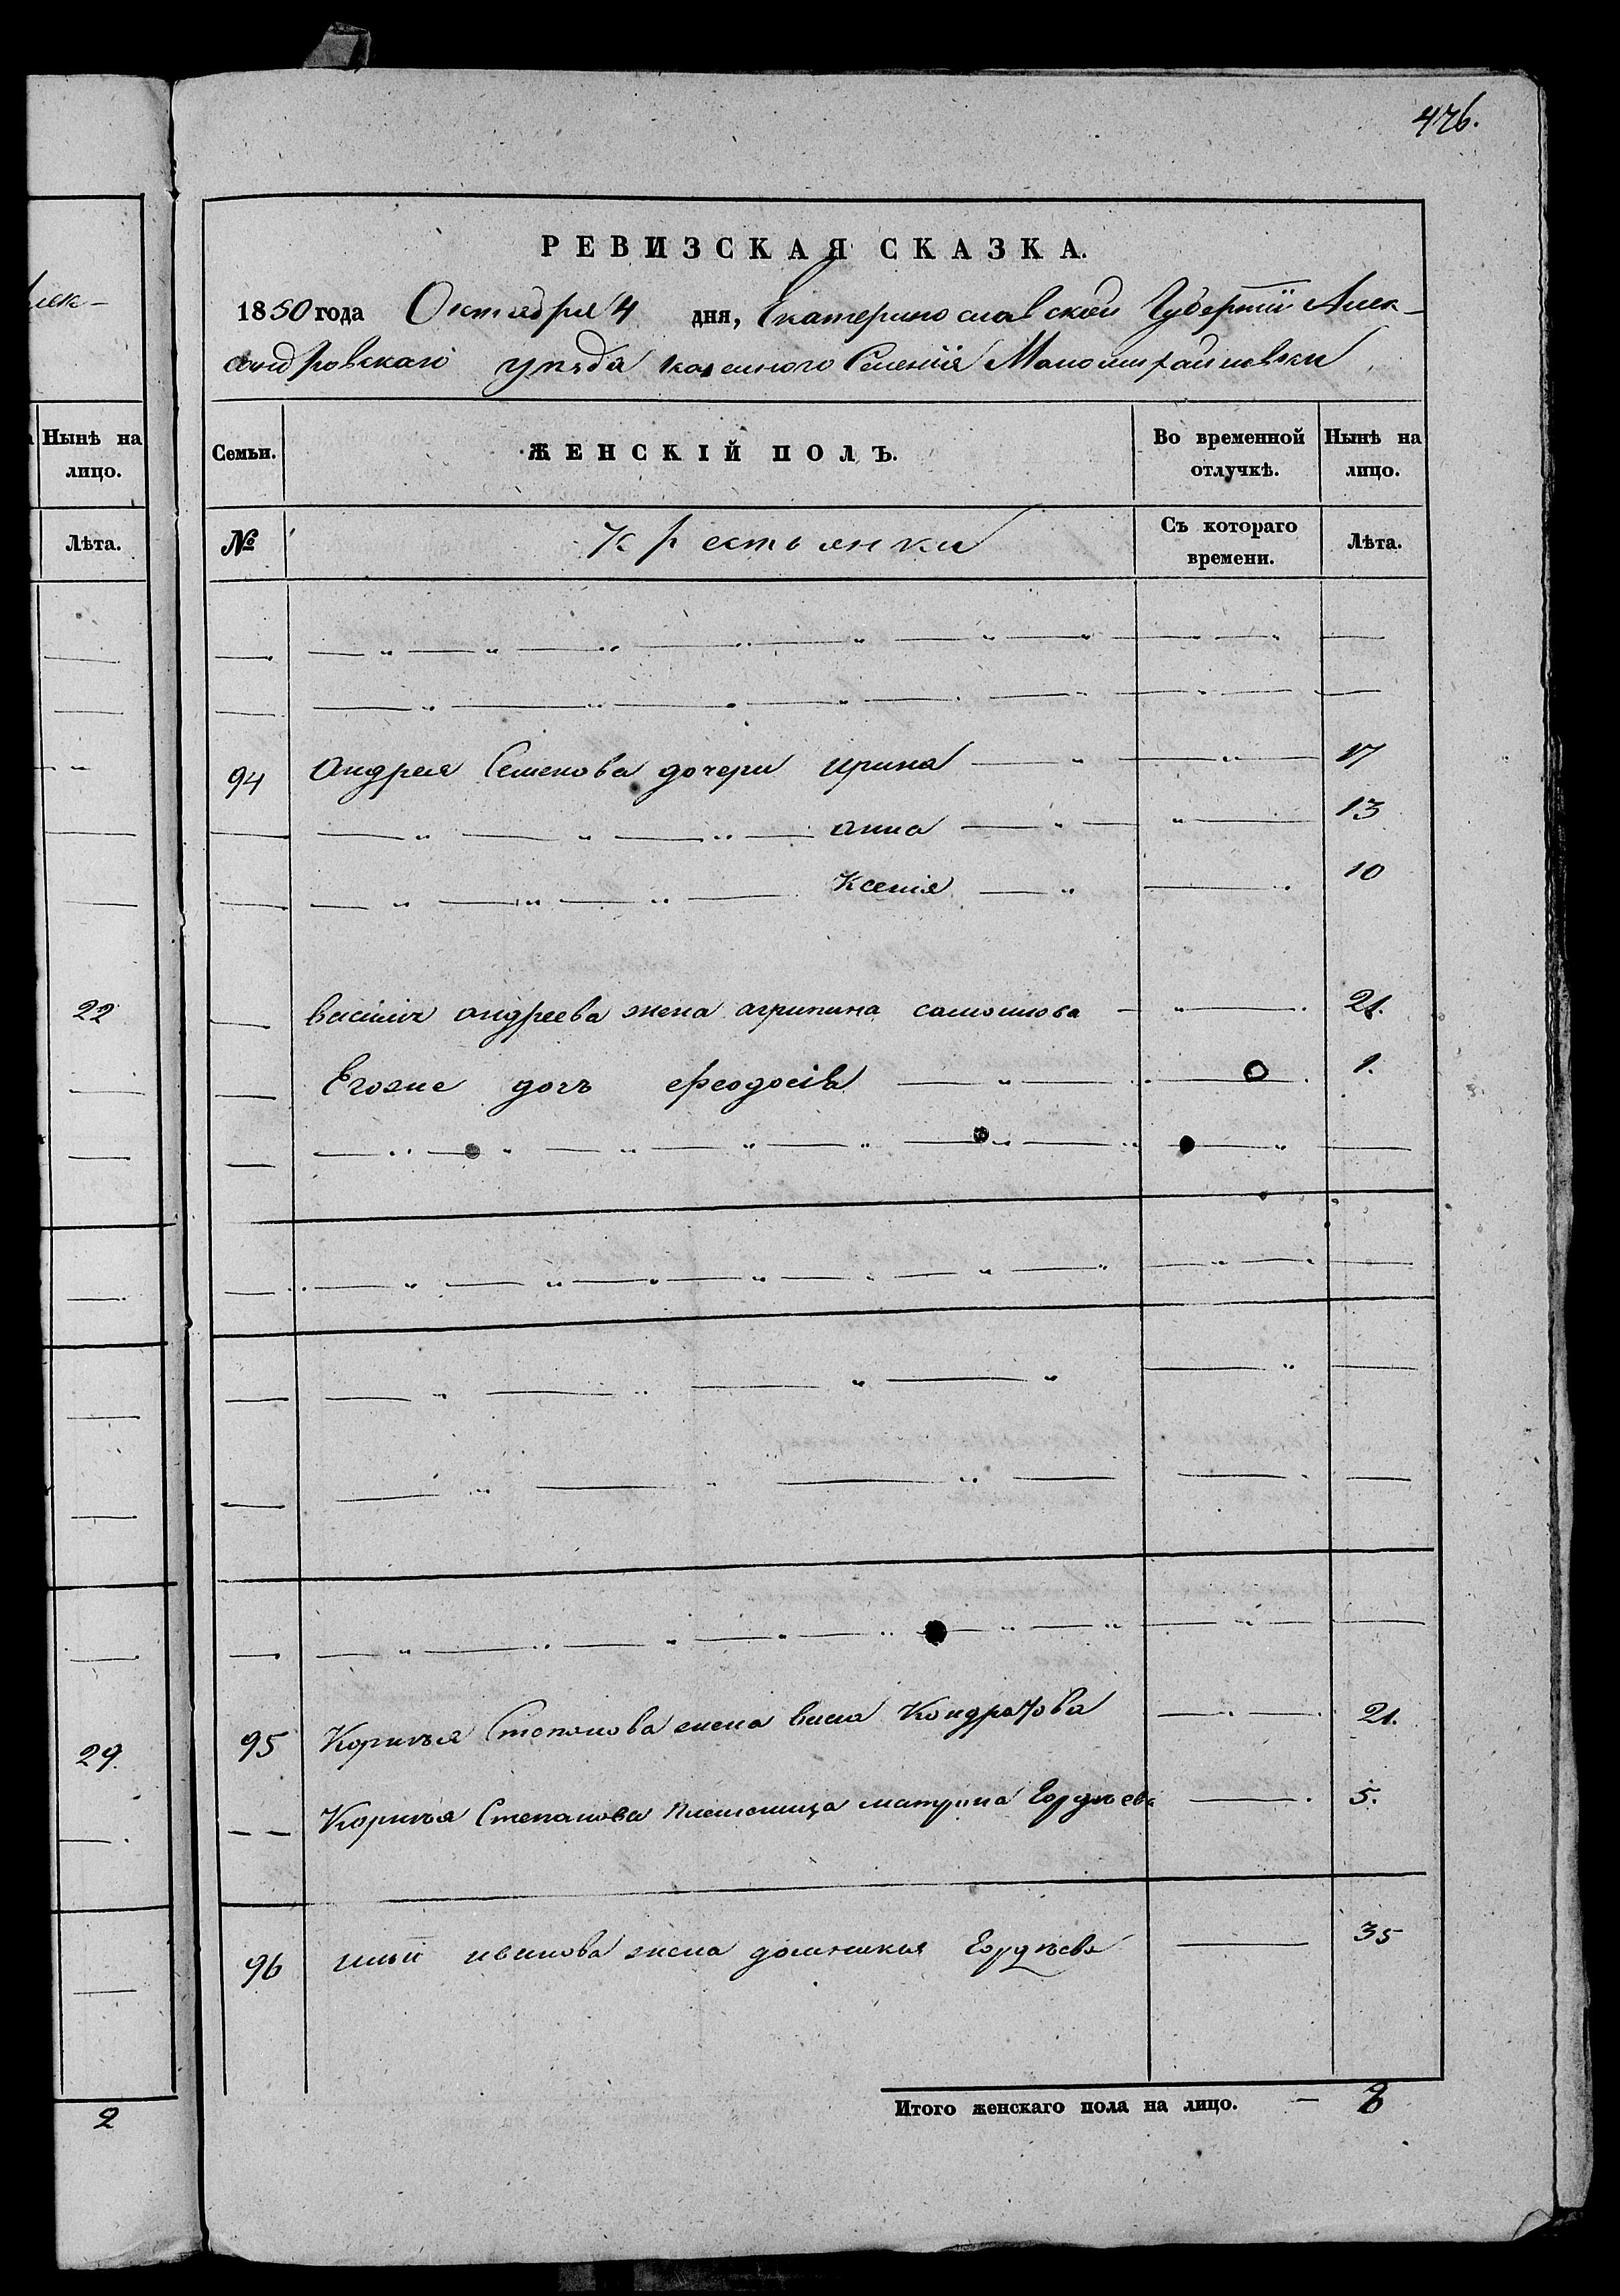 476.
лек-
Нынѣ на
лицо.
Лѣта.
22
29.
2
РЕВИЗСКАЯ СКАЗКА.
1850 года Октября 4 дня, Екатеринославской Губерніи Алек-
сандровскаго уѣзда казенного Селенія Маломихайловки
Семьи.
ЖЕНСКІЙ ПОЛЪ.
Во временной отлучкѣ.
Нынѣ на лицо.
№
Крестьянки
Съ котораго времени.
Лѣта.
94 Андрея Семенова дочери ирина 17
анна 13
Ксенія 10
василія андреева жена агрипина самошнова 21.
Егоже дочь феодосія 1.
95 Корнѣя Степанова жена васа Кондратова 21.
Корнѣя Степанова племеница матрона Гордѣева 5.
96 ильи иванова жена домникия Гордѣева 35
Итого женскаго пола на лицо. — 8